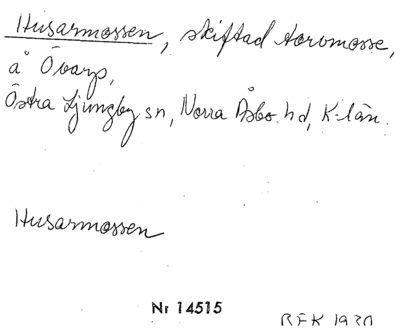 Husarmossen, skiftad torvmosse,
å Övarp,
Östra Ljungby sn, Norra Åsbo hd, K-län.
Husarmossen
Nr 14515